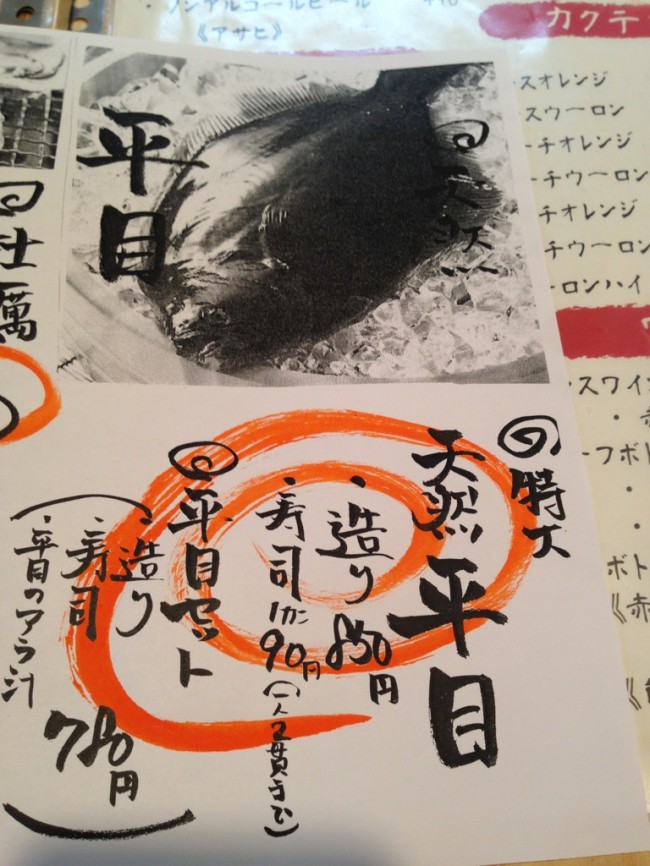 ・ノンアルコールビール
《アサヒ》
カクテ
スオレンジ
スウーロン
ーチオレンジ
ーチウーロン
チオレンジ
チウーロン
ーロンハイ
スワイ
・赤
ーフボト
ボト
《赤
天然
平目
牡蠣
特大
天然平目
・造り 850円
・寿司 1カン 90円
(一人2貫まで)
平目セット
・造り
・寿司
・平目のアラ汁
780円